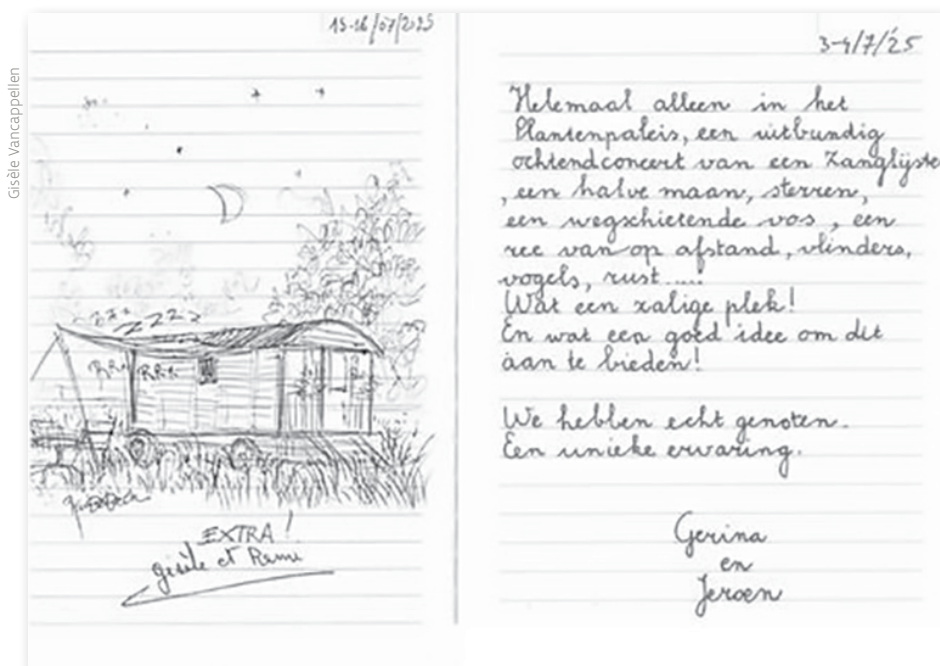 Gisèle Vancappellen
15-16/07/2025
zzz zzzz
RRR RRR
EXTRA!
Gisèle et Remi
3-4/7/'25
Helemaal alleen in het
Plantenpaleis, een uitbundig
ochtendconcert van een Zanglijste
, een halve maan, sterren,
een wegschietende vos, een
ree van op afstand, vlinders,
vogels, rust.....
Wat een zalige plek!
En wat een goed idee om dit
aan te bieden!
We hebben echt genoten.
Een unieke ervaring.
Gerina
en
Jeroen